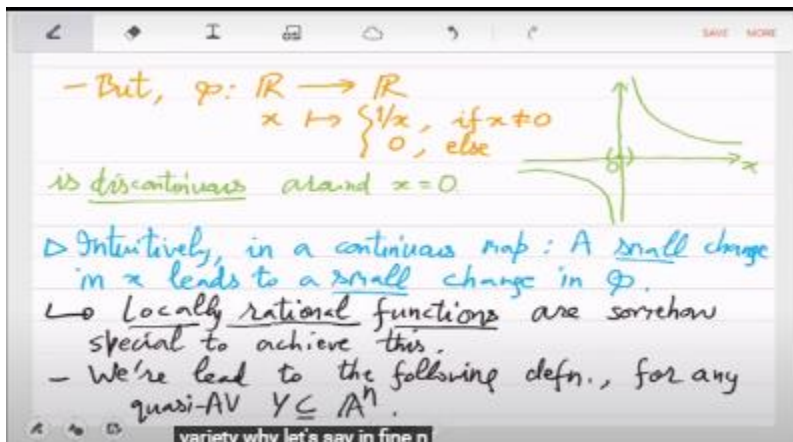 SAVE MORE
- But, φ: ℝ → ℝ
x ↦ { 1/x, if x≠0
0, else
is discontinuous around x=0
x
▷ Intuitively, in a continuous map: A small change
in x leads to a small change in φ.
↳ Locally rational functions are somehow
special to achieve this.
- We're lead to the following defn., for any
quasi-AV Y ⊆ 𝔸ⁿ.
variety why let's say in fine n